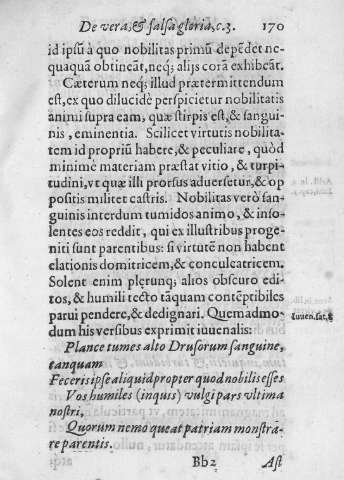 De vera, & falsa gloria, c. 3. 170
id ipsū à quo nobilitas primū depēdet ne-
quaquā obtineāt, neq; alijs corā exhibeāt.
Cæterum neq; illud prætermittendum
est, ex quo dilucidè perspicietur nobilitatis
animi supra eam, quæ stirpis est, & sangui-
nis, eminentia. Scilicet virtutis nobilita-
tem id propriū habere, & peculiare, quòd
minimè materiam præstat vitio, & turpi-
tudini, vt quæ illi prorsus aduersetur, & op
positis militet castris. Nobilitas verò san-
guinis interdum tumidos animo, & inso-
lentes eos reddit, qui ex illustribus proge-
niti sunt parentibus: si virtutē non habent
elationis domitricem, & conculcatricem.
Solent enim plerunq; alios obscuro edi-
tos, & humili tecto tāquam contēptibiles
parui pendere, & dedignari. Quemadmo-
dum his versibus exprimit iuuenalis: Iuuen. sat. 8
Plance tumes alto Drusorum sanguine,
tanquam
Feceris ipse aliquid propter quod nobilis esses
Vos humiles (inquis) vulgi pars vltima
nostri,
Quorum nemo queat patriam monstrā-
re parentis.
Bb2 Ast